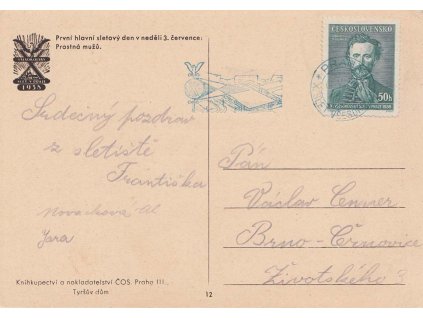 První hlavní sletový den v neděli 3. července:
Prostná mužů.
1938
ČESKOSLOVENSKO
50h
Srdečný pozdrav
z sletiště
Františka
Nováčková Al
Jara
Pán
Václav
Brno-Černovice
Životského 3
Knihkupectví a nakladatelství ČOS. Praha III.,
Tyršův dům
12